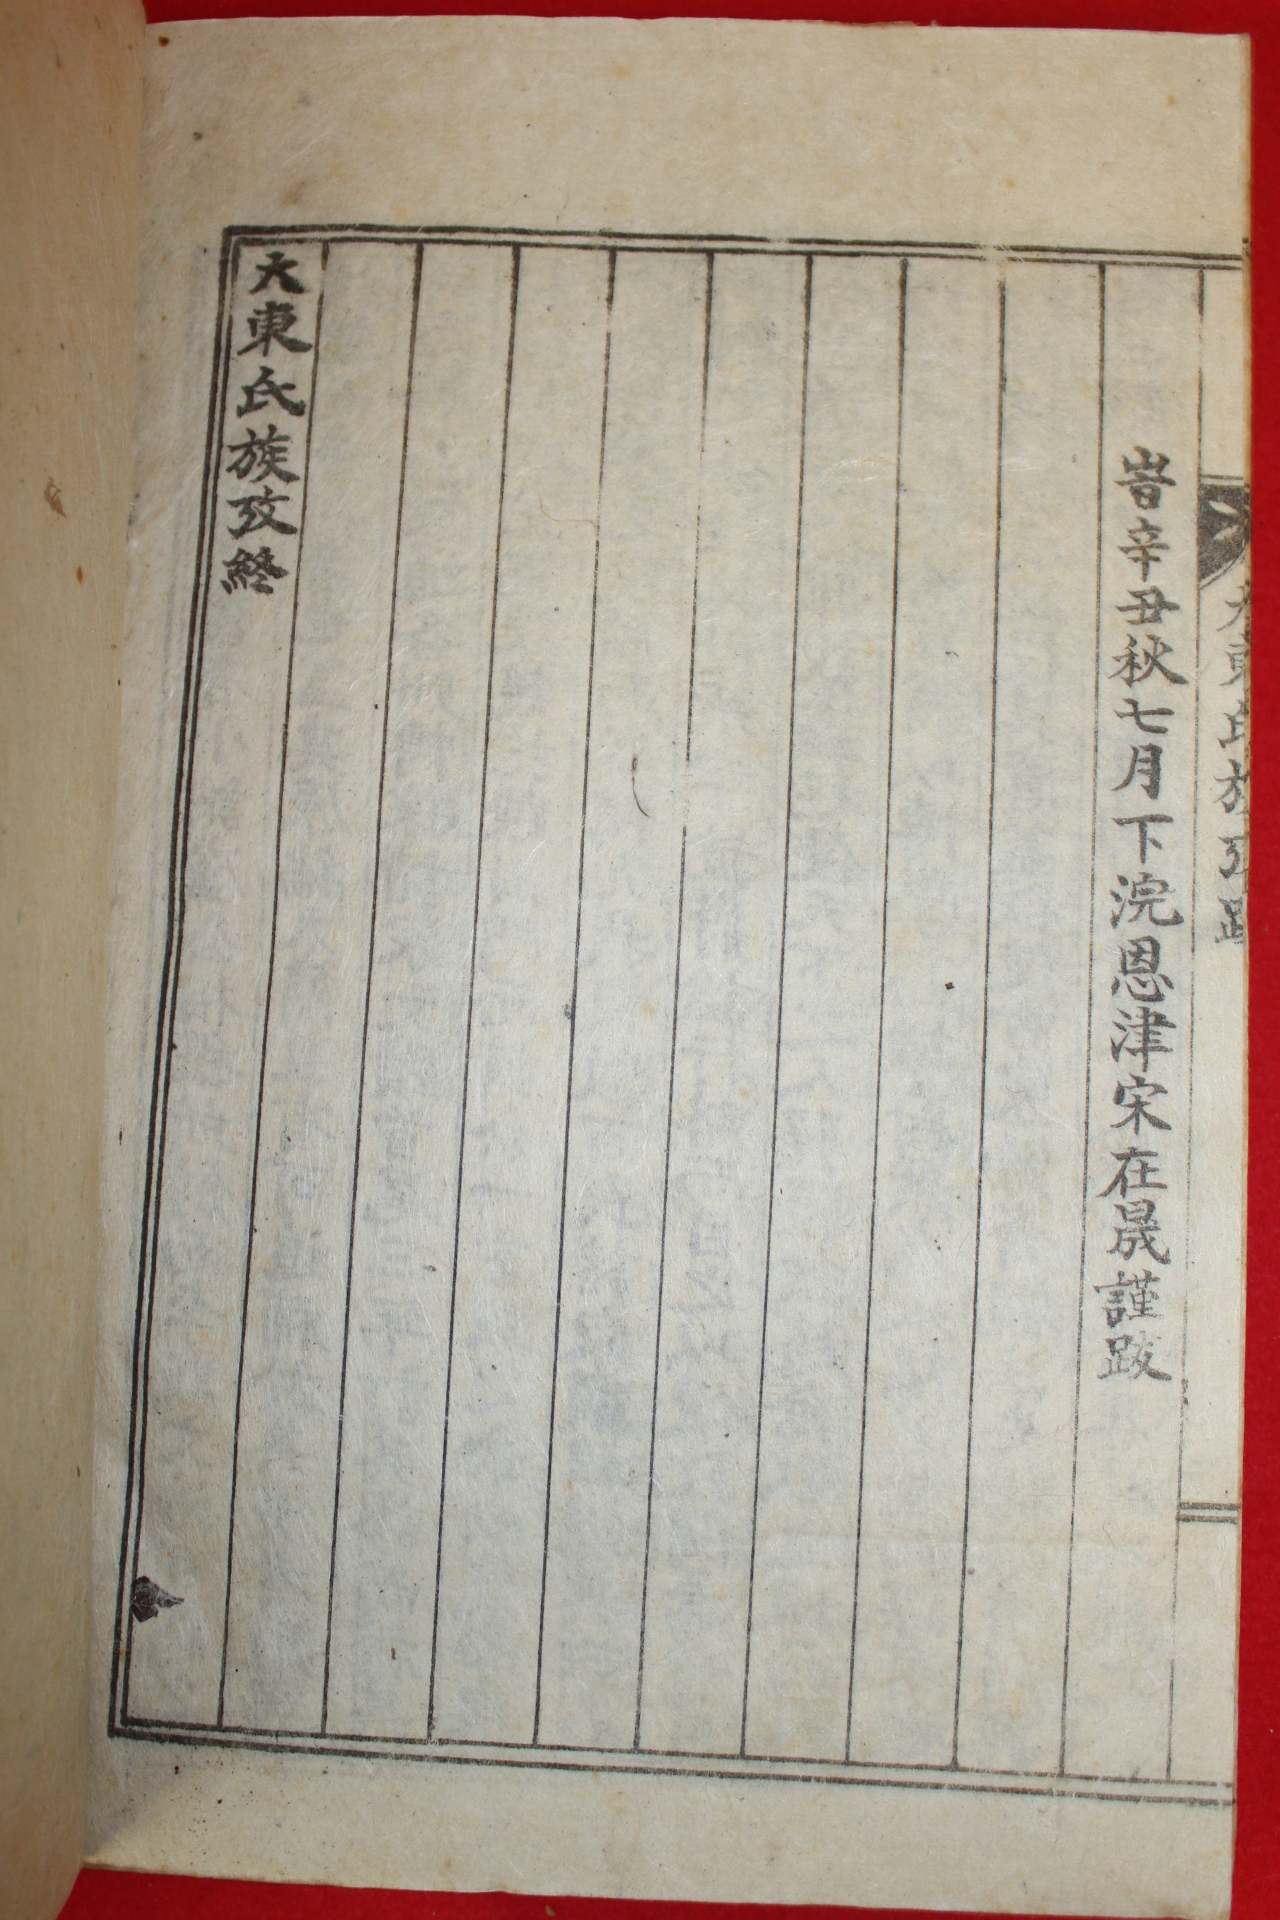 大東氏族攷跋
旹辛丑秋七月下浣恩津宋在晟謹跋
大東氏族攷終